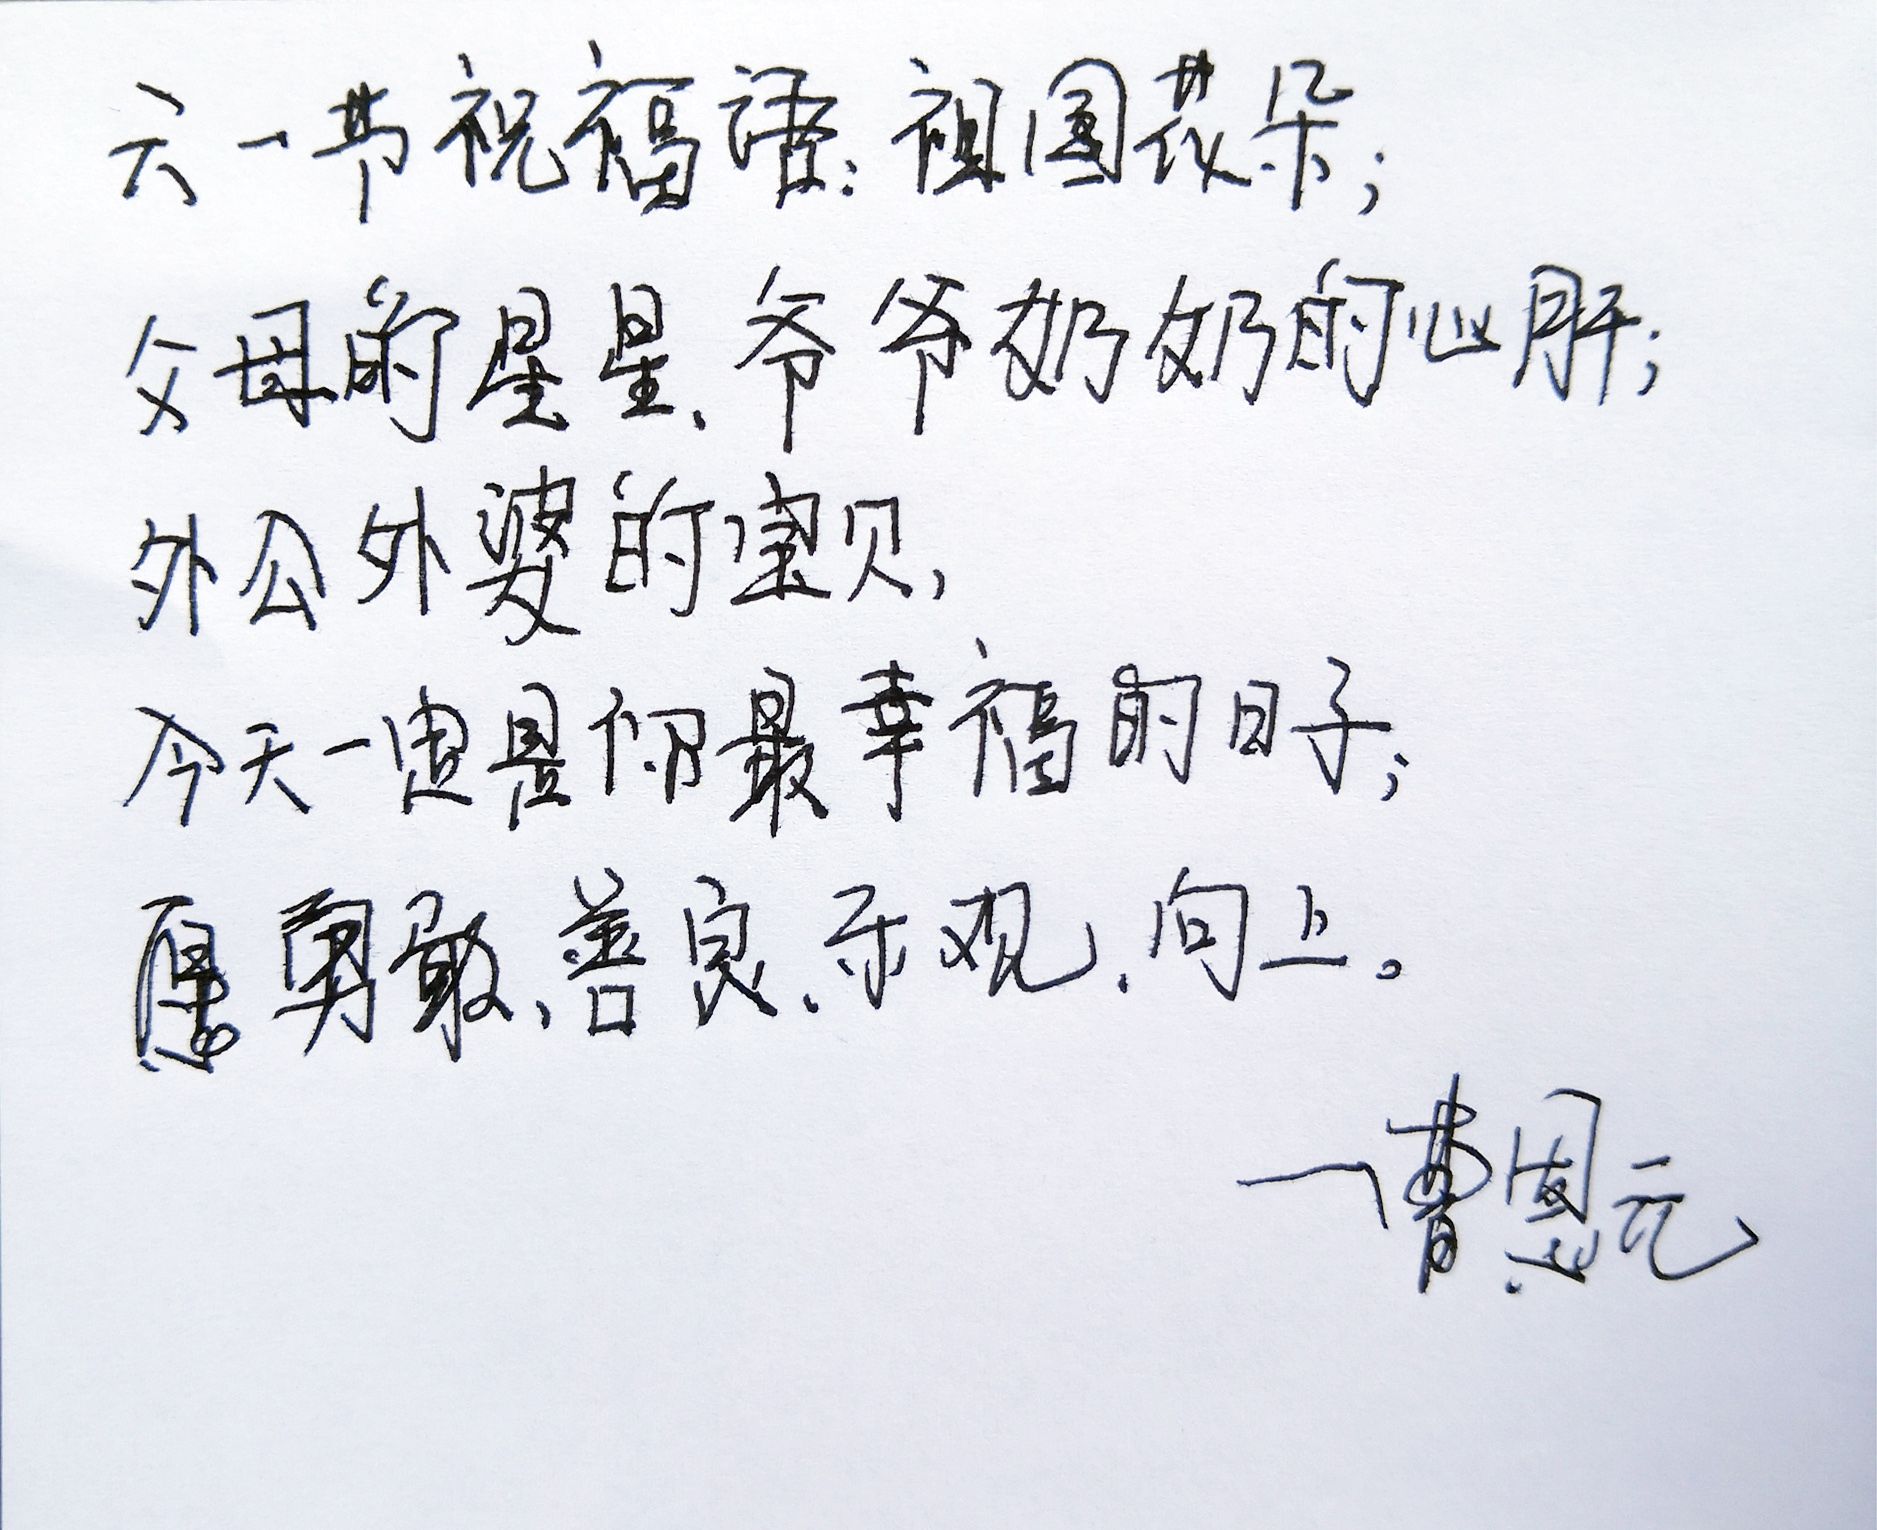 六一节祝福语:祖国花朵;
父母的星星、爷爷奶奶的心肝;
外公外婆的宝贝,
今天一定是你最幸福的日子;
愿勇敢、善良、乐观、向上。
—曹恩元